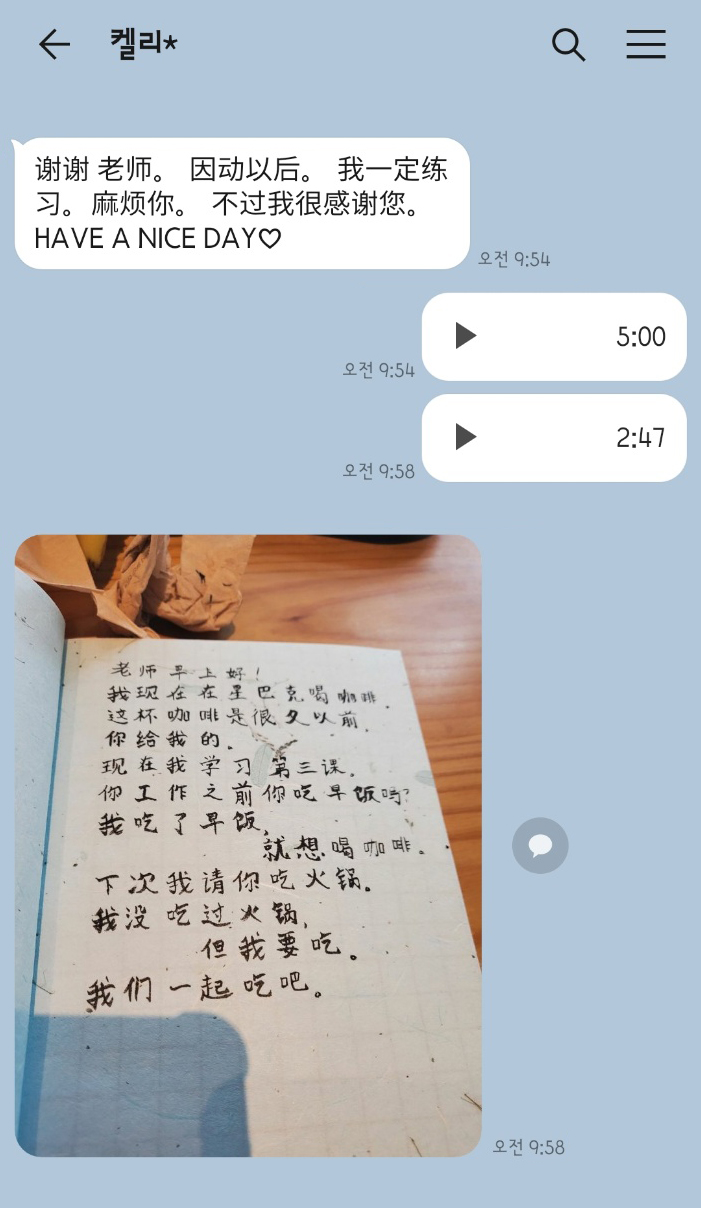 켈리*
谢谢 老师。 因动以后。 我一定练
习。 麻烦你。 不过我很感谢您。
HAVE A NICE DAY♡
오전 9:54
5:00
오전 9:54
2:47
오전 9:58
老师早上好!
我现在在星巴克喝咖啡.
这杯咖啡是很久以前.
你给我的.
现在我学习第三课.
你工作之前你吃早饭吗?
我吃了早饭,
就想喝咖啡。
下次我请你吃火锅.
我没吃过火锅,
但我要吃。
我们一起吃吧。
오전 9:58